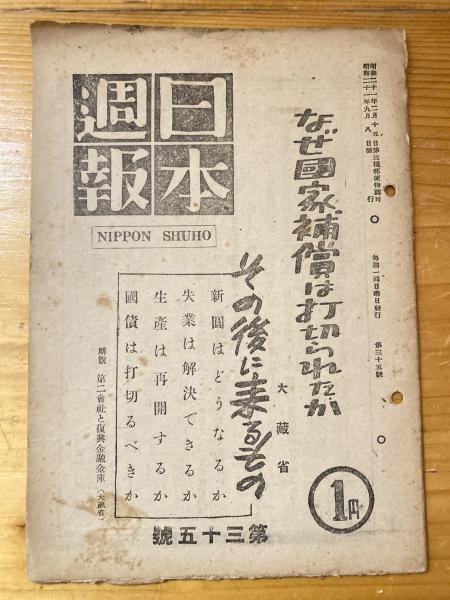 昭和二十一年二月十五日第三種郵便物認可
昭和二十一年九月八日發行
每週一回日曜日發行
第三十五號
日本
週報
NIPPON SHUHO
なぜ國家補償は打切られたか
その後に来るもの
大藏省
新圓はどうなるか
失業は解決できるか
生産は再開するか
國債は打切るべきか
解說 第二會社と復興金融金庫(大藏省)
1円
第三十五號